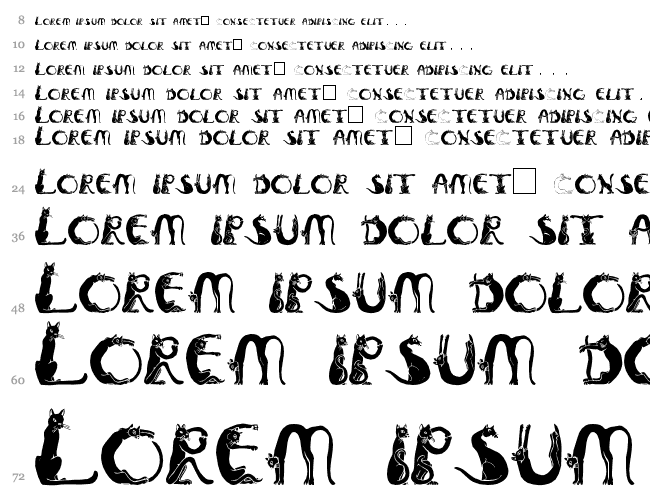 8 Lorem ipsum dolor sit amet□ consectetuer adipiscing elit...
10 Lorem ipsum dolor sit amet□ consectetuer adipiscing elit...
12 Lorem ipsum dolor sit amet□ consectetuer adipiscing elit...
14 Lorem ipsum dolor sit amet□ consectetuer adipiscing elit.
16 Lorem ipsum dolor sit amet□ consectetuer adipiscing e
18 Lorem ipsum dolor sit amet□ consectetuer adip
24 Lorem ipsum dolor sit amet□ conse
36 Lorem ipsum dolor sit a
48 Lorem ipsum dolor
60 Lorem ipsum do
72 Lorem ipsum